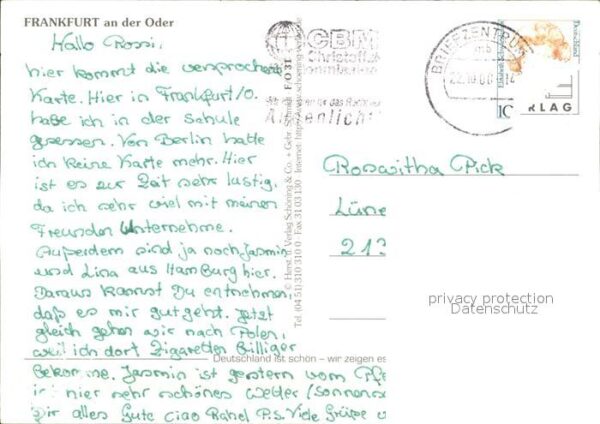 FRANKFURT an der Oder
Hallo Rossi,
hier kommt die versprochene
Karte. Hier in Frankfurt/O.
habe ich in der Schule
gesessen. Von Berlin hatte
ich keine Karte mehr. Hier
ist es zur Zeit sehr lustig,
da ich sehr viel mit meinen
Freunden Unternehme.
Außerdem sind ja noch Jasmin
und Lina aus Hamburg hier.
Daraus kannst Du entnehmen,
daß es mir gut geht. Jetzt
gleich gehen wir nach Polen,
weil ich dort Zigaretten billiger
bekomme. Jasmin ist gestern vom Pfe
hier sehr schönes Wetter (Sonnens
Dir alles Gute Ciao Rahel P.S. Viele Grüße
© Herst. u. Verlag Schöning & Co. + Gebr. Schmidt
Tel. (04 51) 310 310 0 · Fax 31 03 130
FO 31
CBM
Christoffel
Augenlicht
BRIEFZENTRUM
mb
22.10.00
Deutschland
RLAG
Roswitha Pick
Lüne
213
privacy protection
Datenschutz
Deutschland ist schön – wir zeigen es